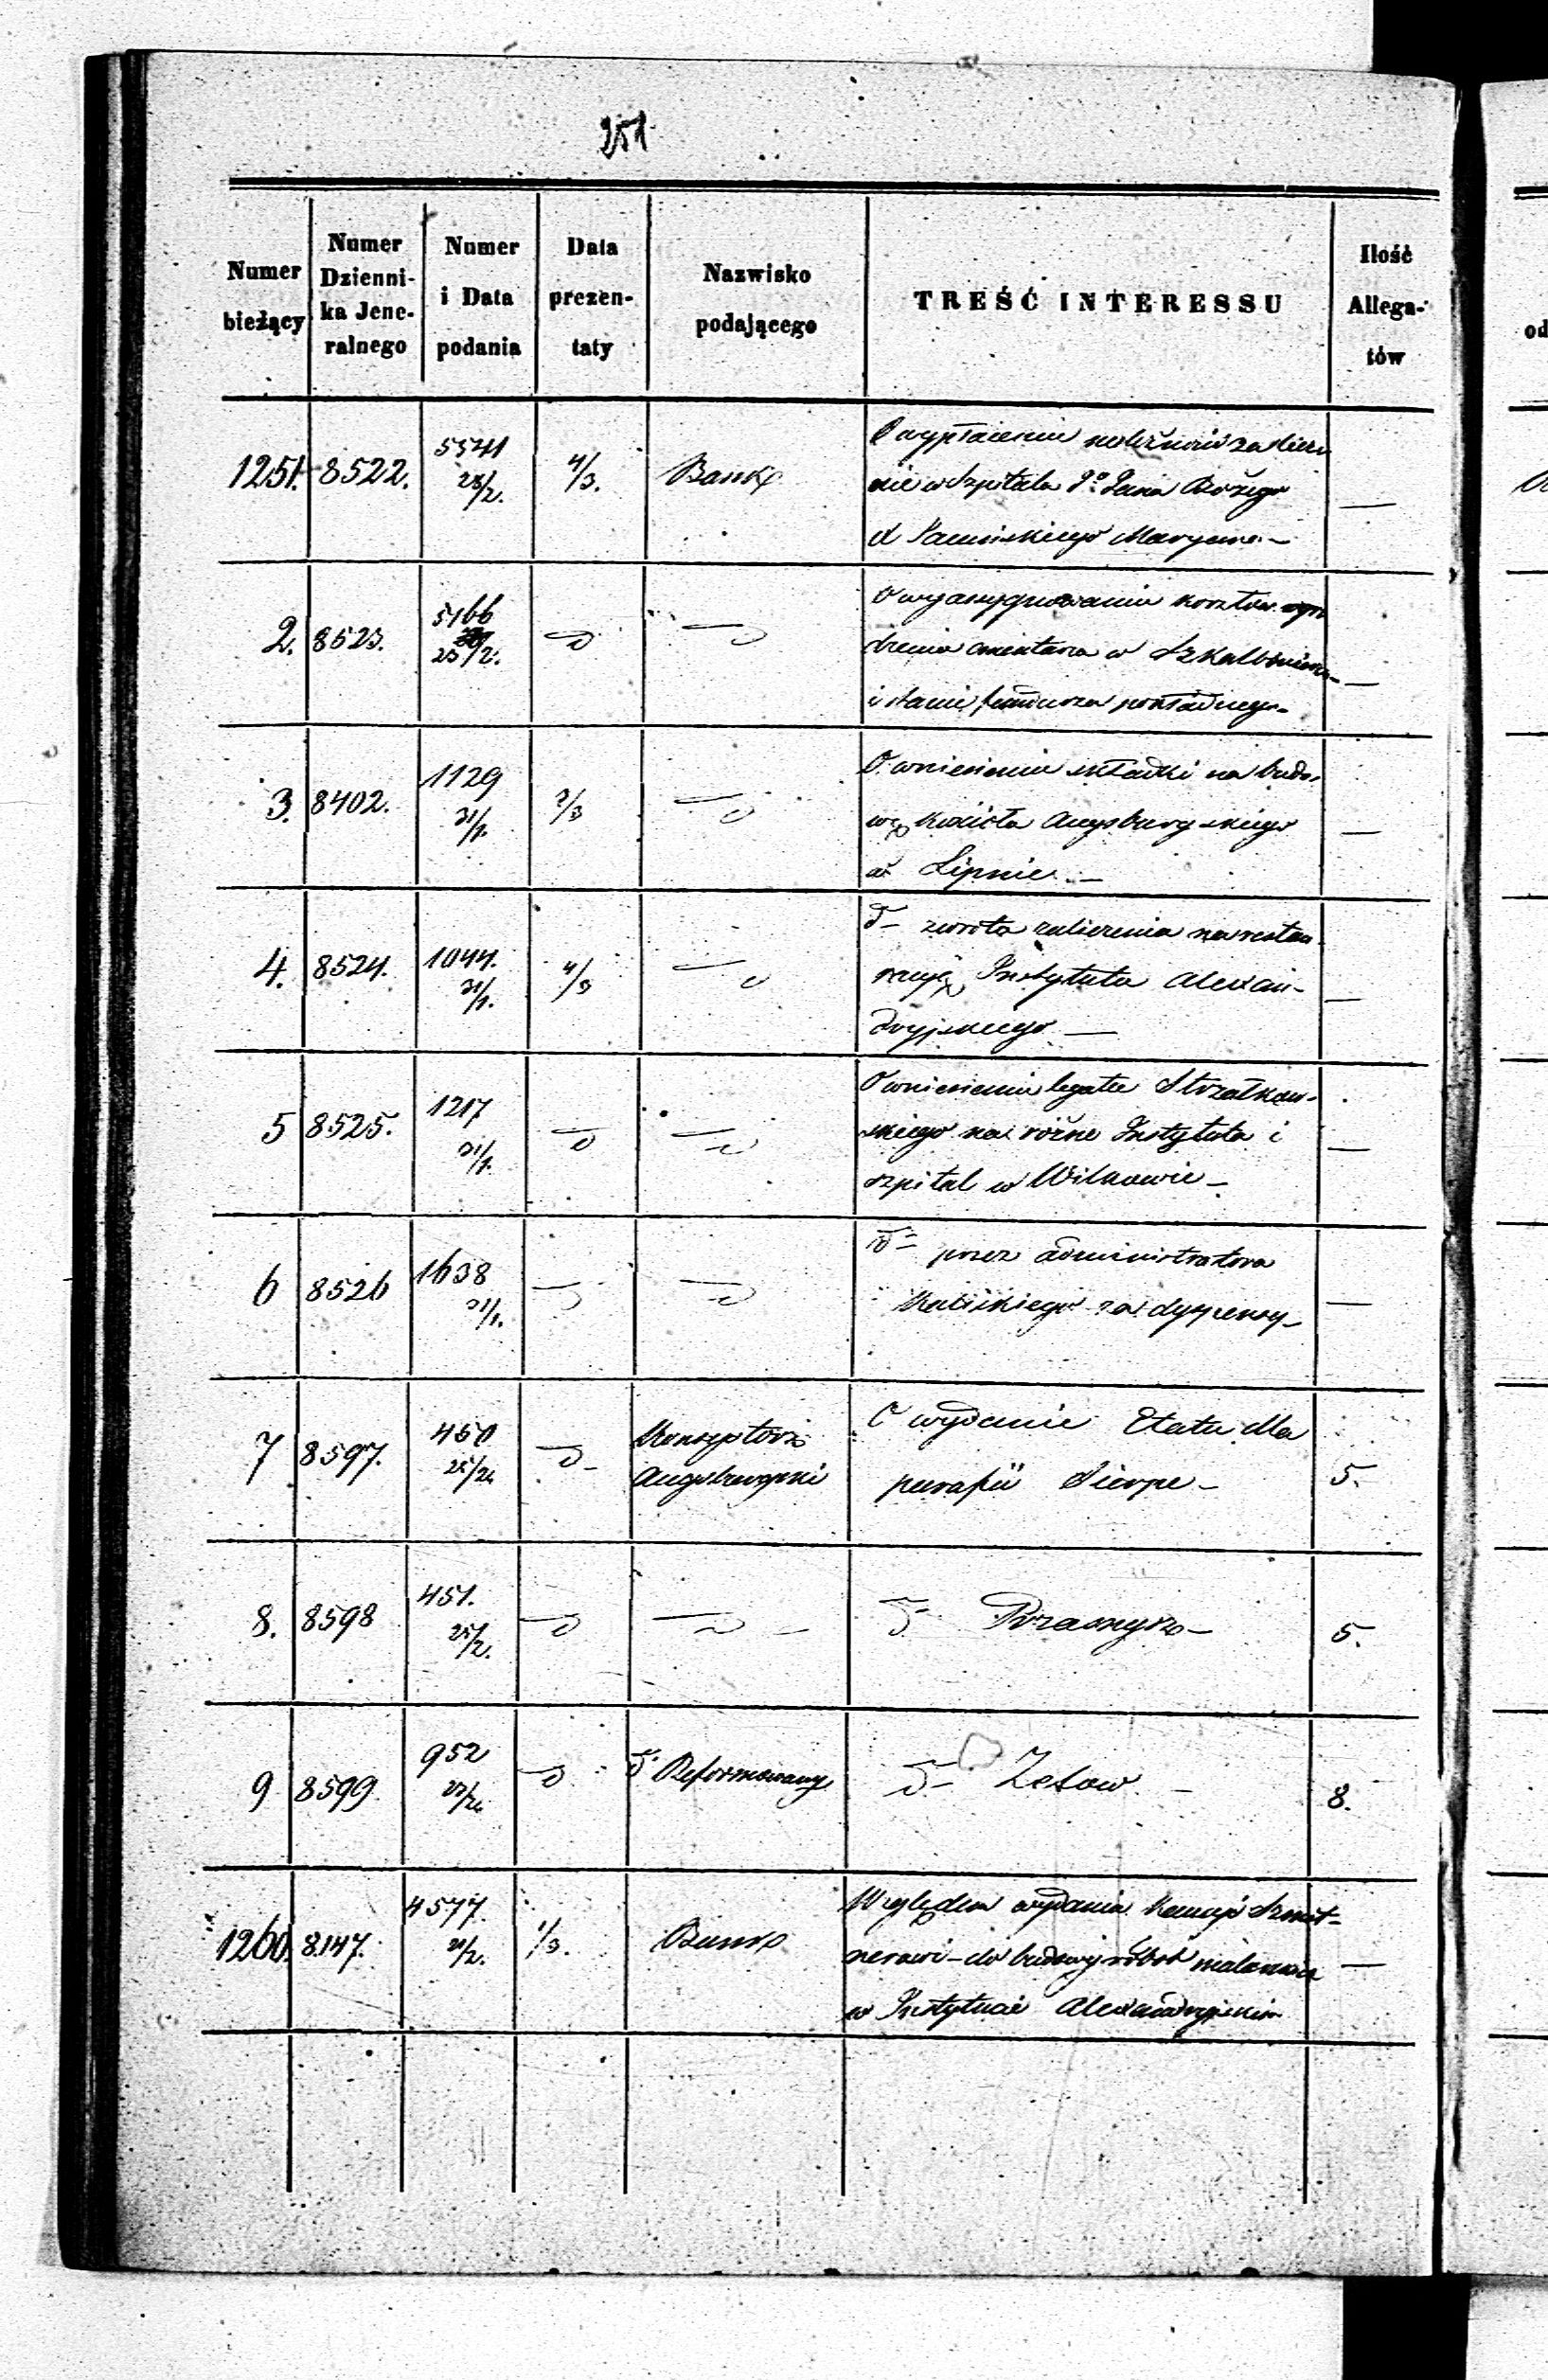 251
Numer bieżący
Numer Dzienni-ka Jene-ralnego
Numer i Data podania
Data prezen-taty
Nazwisko podającego
TREŚĆ INTERESSU
Ilość Allega-tów
1251. 8522. 5571 28/2. 4/3. Bank
O wypłacenie należności za lecze
nie w Szpitalu Sº Jana Bożego
Maryanna —
2. 8523. 5166 25/2. — d — d
O wyasygnowanie kosztów
cmentarza w Szkalbmierzu —
i
3. 8402. 1129 31/1. 2/3 — d
O wniesienie składki na budo-
wę kościoła Augsburgskiego —
w Lipnie —
4. 8524. 1044. 31/1. 4/3 — d
d — zwrotu zaliczenia na restau
racyę Instytutu Alexan- —
dryjskiego —
5 8525. 1217 31/1. — d — d
O wniesienie legatu Strzałkow-
skiego na różne Instytuta i —
szpital w Wilkowie —
6 8526 1638 31/1. — d — d
d — przez administratora
Kaliskiego za dyspensy — —
7 8597. 450 25/2. — d — Konsystorz Augsburgski
O wydanie Etatu dla
parafii Sierpc — 5.
8. 8598 451. 25/2. — d — d — d — Przasnysz — 5.
9 8599 952 27/2. — d d Reformowany d — Zelow — 8.
1260. 8147. 4577. 21/2. 1/3. Bank
Względem wydania kaucyi
nerowi — do budowy robót malarskich —
w Instytucie Alexandryjskim